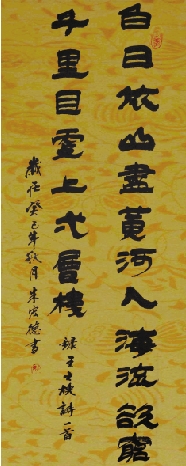 白日依山盡黃河入海流欲窮
千里目更上弌層樓 錄王之渙詩一首
癸巳年秋月朱德書